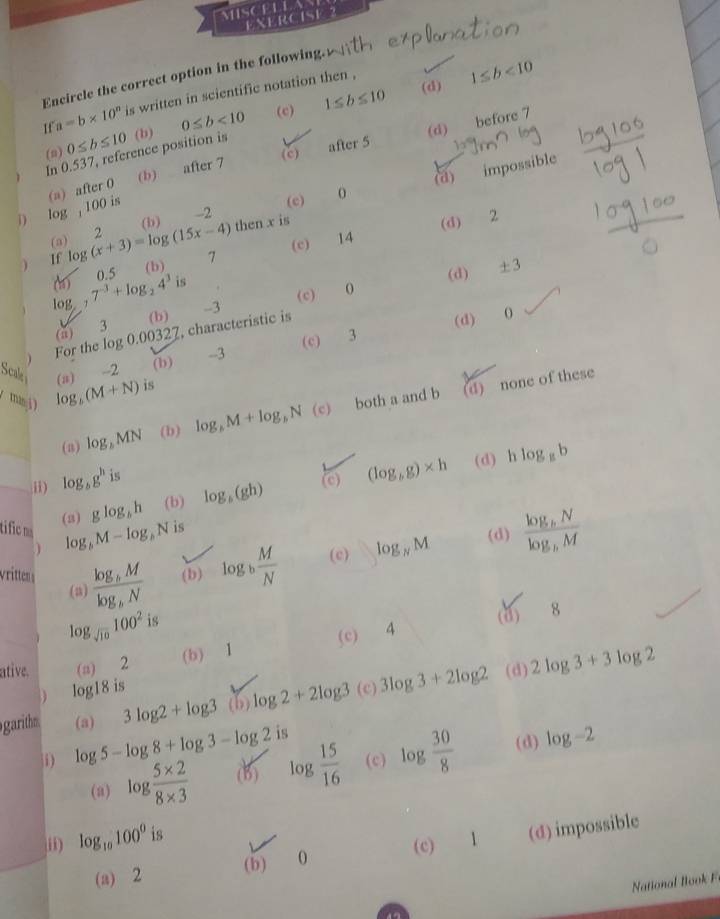 MISCELLANEOUS
EXERCISE 2
Encircle the correct option in the following. with explanation
If a = b × 10ⁿ is written in scientific notation then ,
(a) 0 ≤ b ≤ 10 (b) 0 ≤ b < 10 (c) 1 ≤ b ≤ 10 (d) 1 ≤ b < 10
In 0.537, reference position is
(a) after 0 (b) after 7 (c) after 5 (d) before 7
i) log ₁ 100 is
(a) 2 (b) -2 (c) 0 (d) impossible
log 100
log 1
log 100
0
) If log (x + 3) = log (15x − 4) then x is
(a) 0.5 (b) 7 (c) 14 (d) 2
log ₇ 7⁻³ + log ₂ 4³ is
(a) 3 (b) -3 (c) 0 (d) ±3
) For the log 0.00327, characteristic is
(a) -2 (b) -3 (c) 3 (d) 0
i) log_b (M + N) is
(a) log_b MN (b) log_b M + log_b N (c) both a and b (d) none of these
ii) log_b gʰ is
(a) g log_b h (b) log_b (gh) (c) (log_b g) × h (d) h log_g b
) log_b M − log_b N is
(a) log_b M / log_b N (b) log_b M/N (c) log_N M (d) log_b N / log_b M
log_√10 100² is
(a) 2 (b) 1 (c) 4 (d) 8
) log18 is
(a) 3 log2 + log3 (b) log 2 + 2log3 (c) 3log 3 + 2log2 (d) 2 log 3 + 3 log 2
i) log 5 − log 8 + log 3 − log 2 is
(a) log 5 × 2 / 8 × 3 (b) log 15/16 (c) log 30/8 (d) log −2
ii) log₁₀ 100⁰ is
(a) 2 (b) 0 (c) 1 (d) impossible
National Book F
Scale
tific
written
ative.
garithm